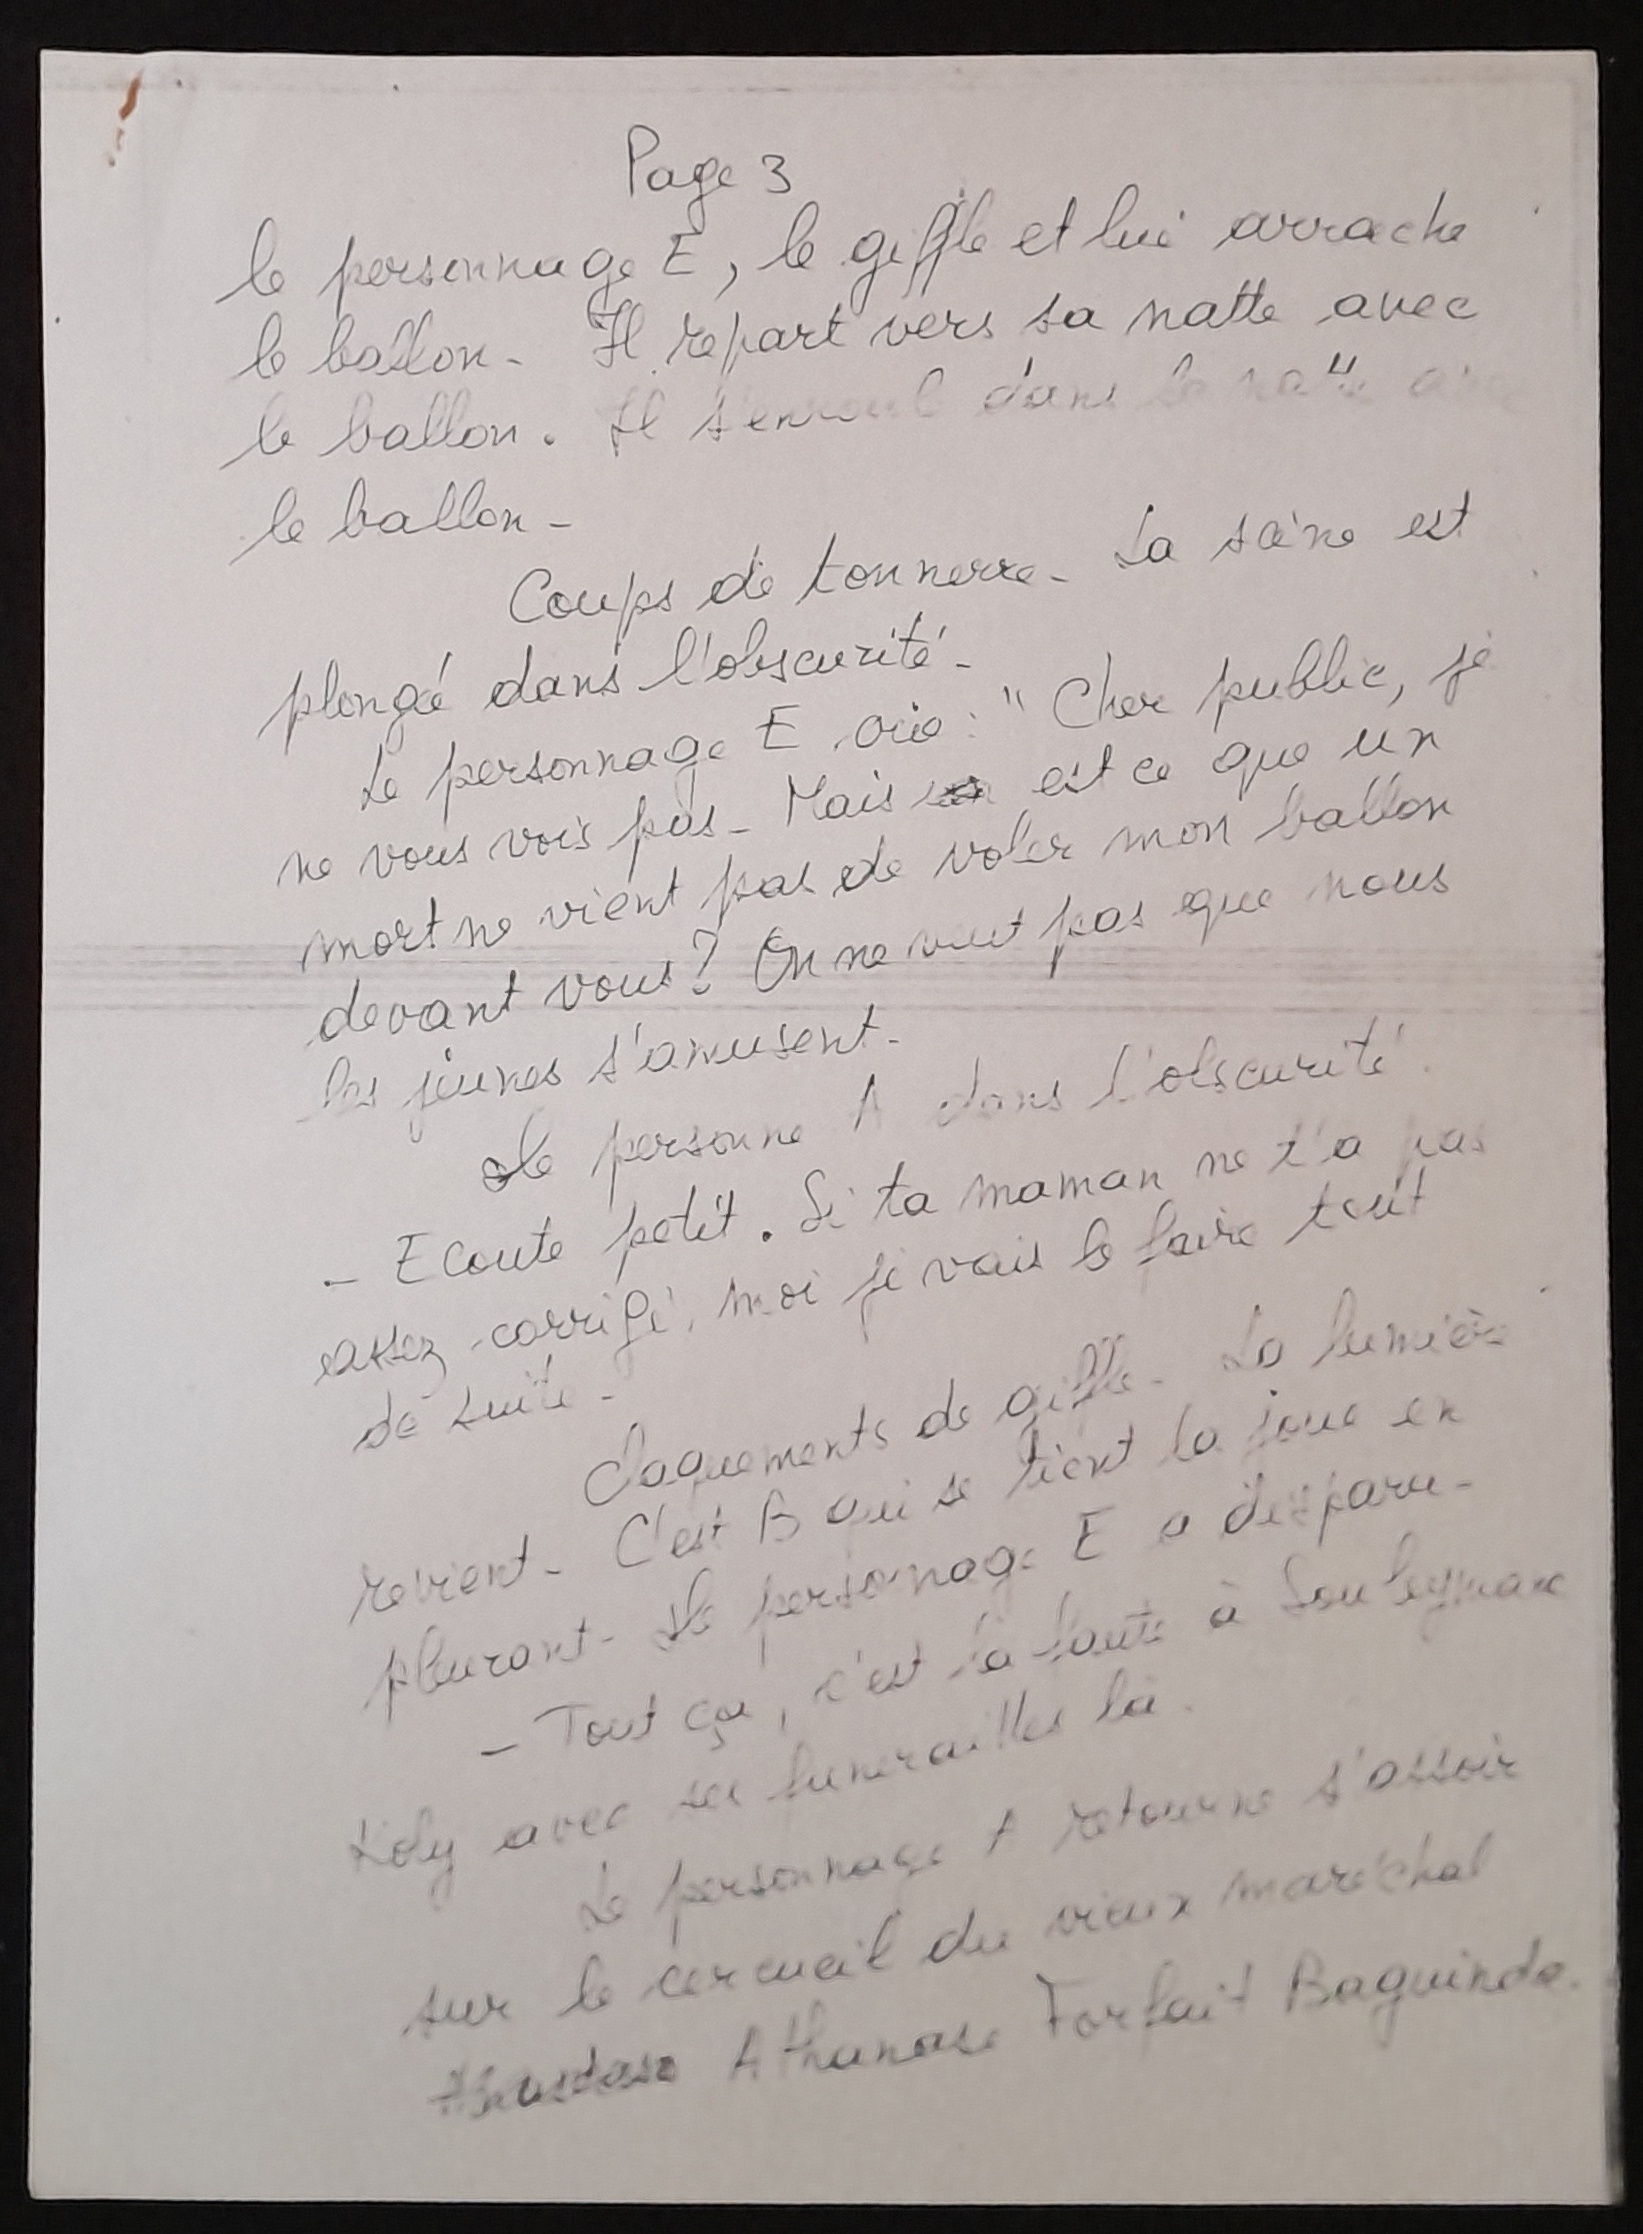 Page 3
le personnage E, le giffle et lui arrache
le ballon - Il repart vers sa natte avec
le ballon. Il s'enroule dans la natte avec
le ballon -
Coups de tonnerre - La scène est
plongé dans l'obscurité -
Le personnage E crie : " Cher public, je
ne vous vois pas - Mais est ce que un
mort ne vient pas de voler mon ballon
devant vous ? On ne veut pas que nous
les jeunes s'amusent -
Le personne A dans l'obscurité.
- Ecoute petit. Si ta maman ne t'a pas
assez corrigé, moi je vais le faire tout
de suite -
Claquements de giffle - La lumière
revient - C'est B qui se tient la joue en
pleurant - Le personnage E a disparu -
- Tout ça, c'est la faute à Souleymane
Koly avec ses funerailles là.
Le personnage A retourne s'assoir
sur le cercueil du vieux maréchal
Athanase Forfait Baguinda.